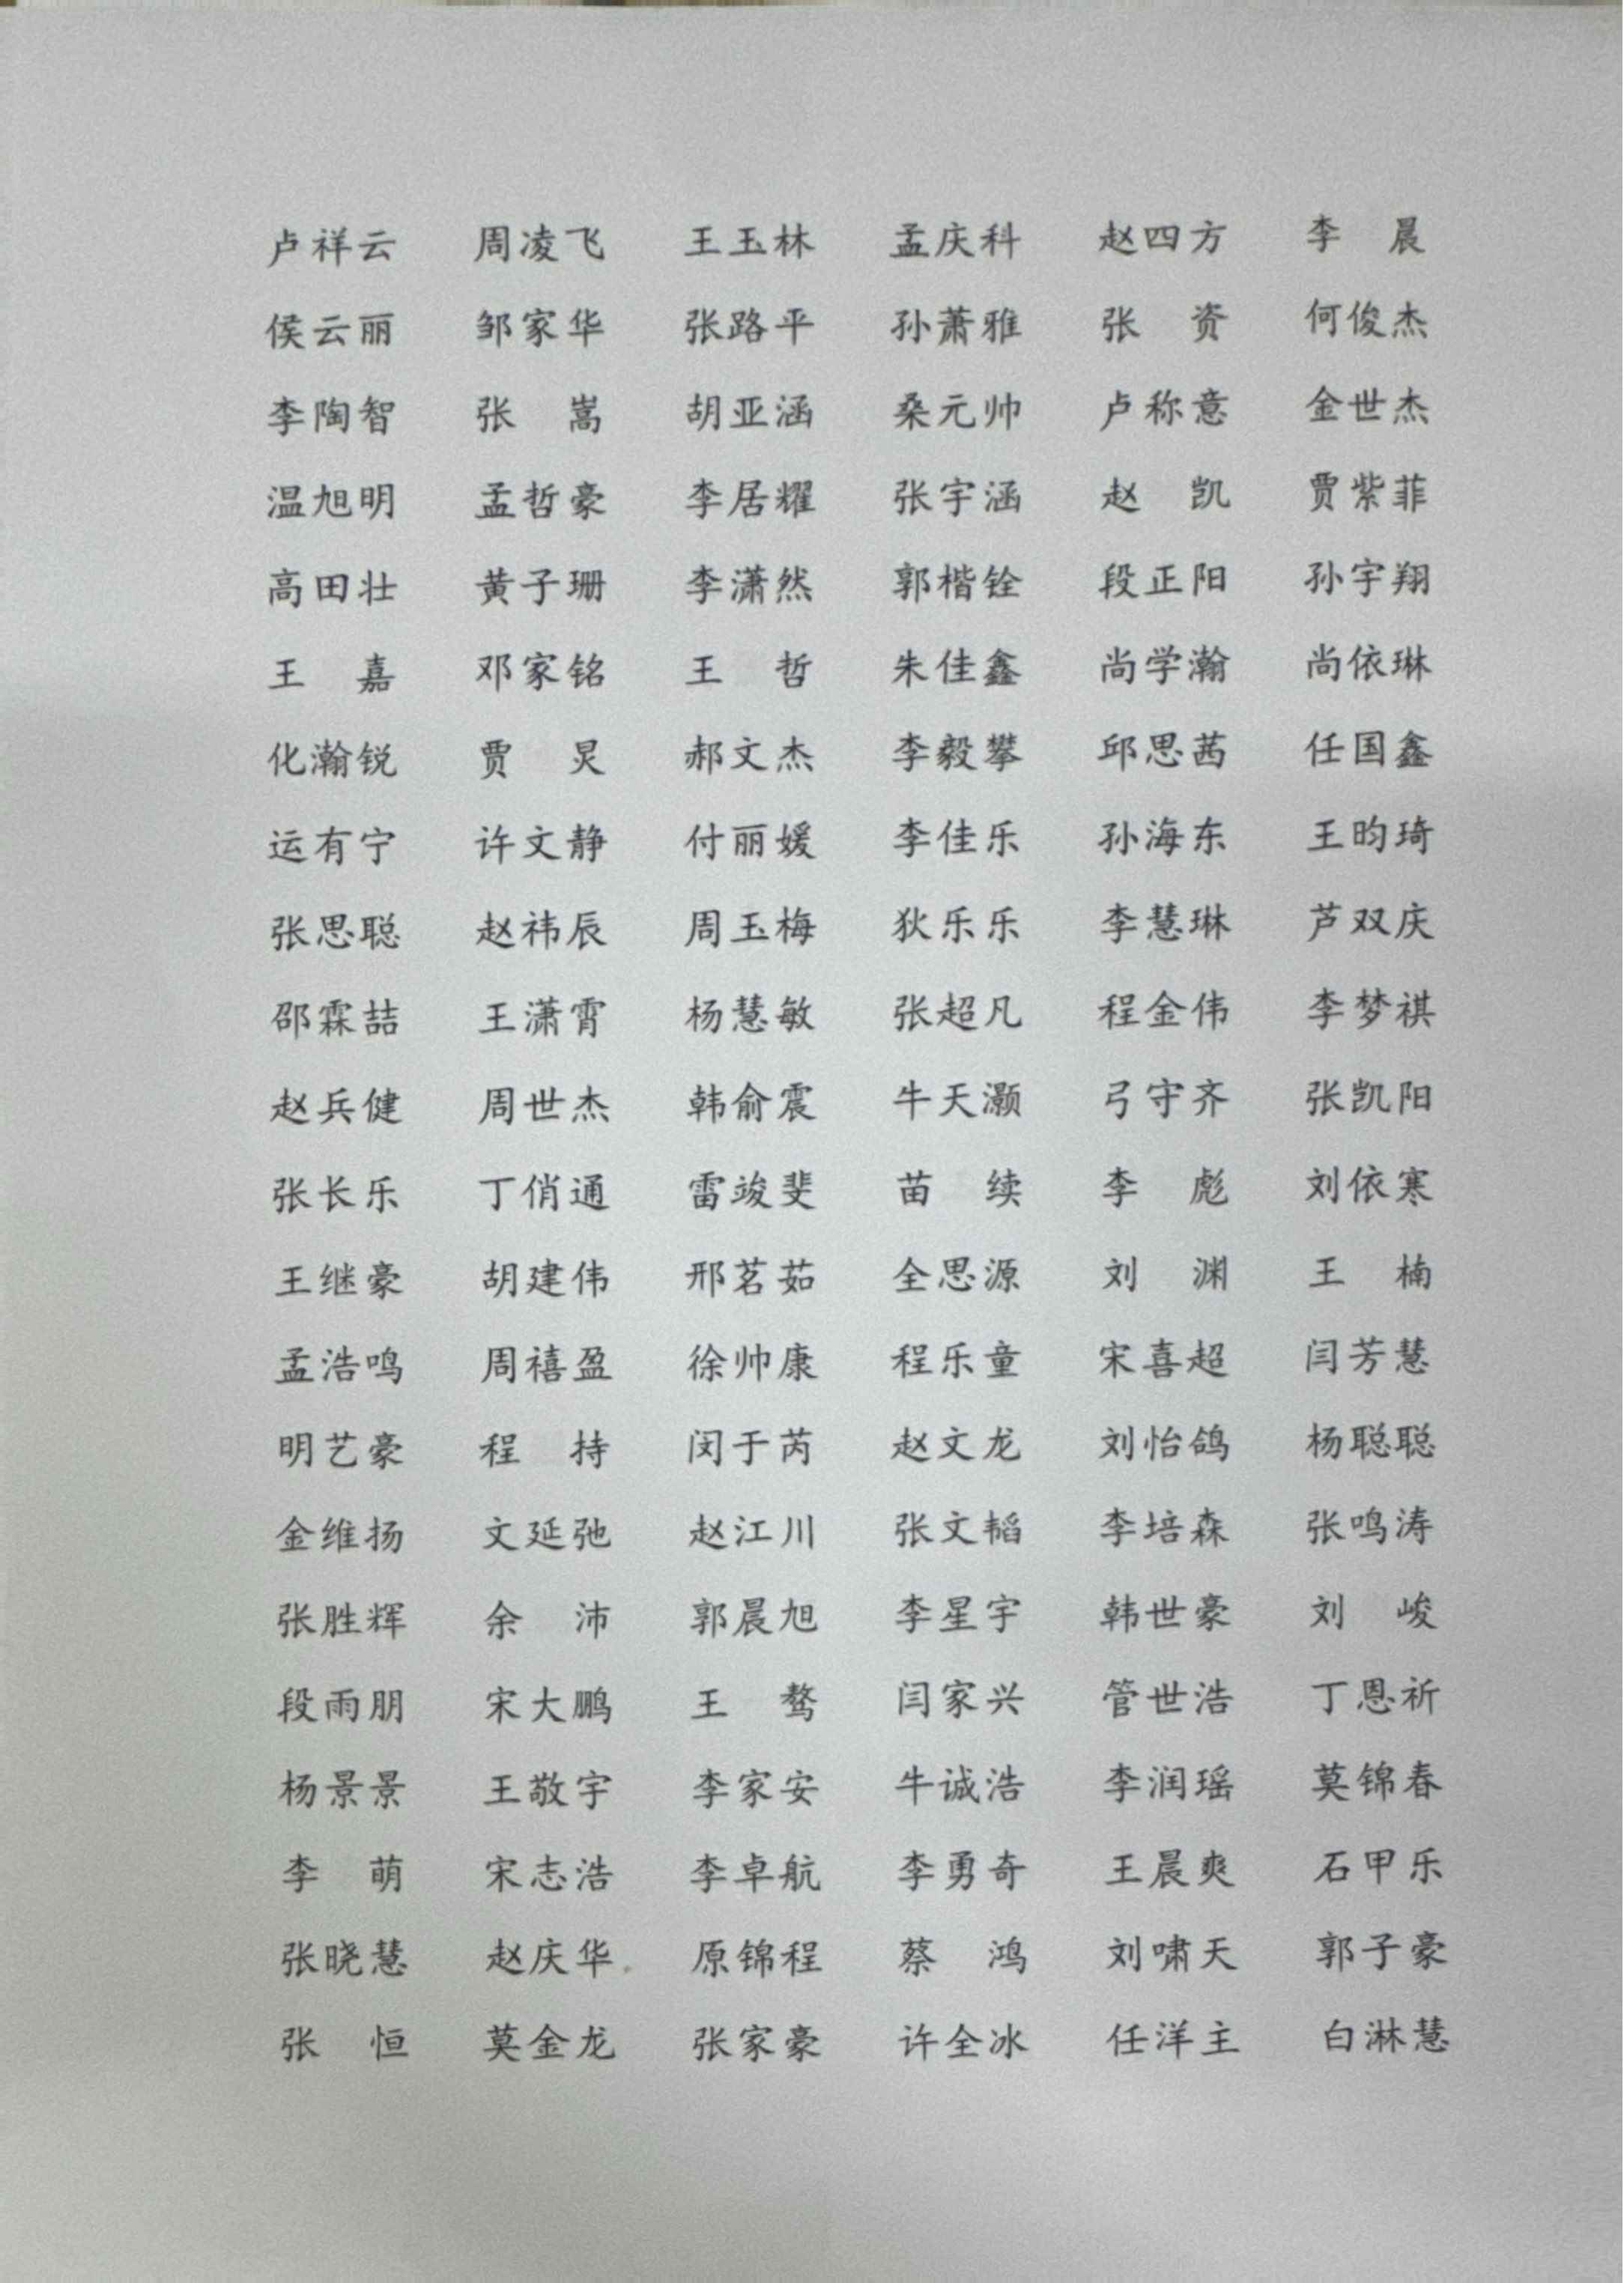 卢祥云 周凌飞 王玉林 孟庆科 赵四方 李 晨
侯云丽 邹家华 张路平 孙萧雅 张 资 何俊杰
李陶智 张 嵩 胡亚涵 桑元帅 卢称意 金世杰
温旭明 孟哲豪 李居耀 张宇涵 赵 凯 贾紫菲
高田壮 黄子珊 李潇然 郭楷铨 段正阳 孙宇翔
王 嘉 邓家铭 王 哲 朱佳鑫 尚学瀚 尚依琳
化瀚锐 贾 炅 郝文杰 李毅攀 邱思茜 任国鑫
运有宁 许文静 付丽媛 李佳乐 孙海东 王昀琦
张思聪 赵祎辰 周玉梅 狄乐乐 李慧琳 芦双庆
邵霖喆 王潇霄 杨慧敏 张超凡 程金伟 李梦祺
赵兵健 周世杰 韩俞震 牛天灏 弓守齐 张凯阳
张长乐 丁俏通 雷竣斐 苗 续 李 彪 刘依寒
王继豪 胡建伟 邢茗茹 全思源 刘 渊 王 楠
孟浩鸣 周禧盈 徐帅康 程乐童 宋喜超 闫芳慧
明艺豪 程 持 闵于芮 赵文龙 刘怡鸽 杨聪聪
金维扬 文延弛 赵江川 张文韬 李培森 张鸣涛
张胜辉 余 沛 郭晨旭 李星宇 韩世豪 刘 峻
段雨朋 宋大鹏 王 骜 闫家兴 管世浩 丁恩祈
杨景景 王敬宇 李家安 牛诚浩 李润瑶 莫锦春
李 萌 宋志浩 李卓航 李勇奇 王晨爽 石甲乐
张晓慧 赵庆华 原锦程 蔡 鸿 刘啸天 郭子豪
张 恒 莫金龙 张家豪 许全冰 任洋主 白淋慧